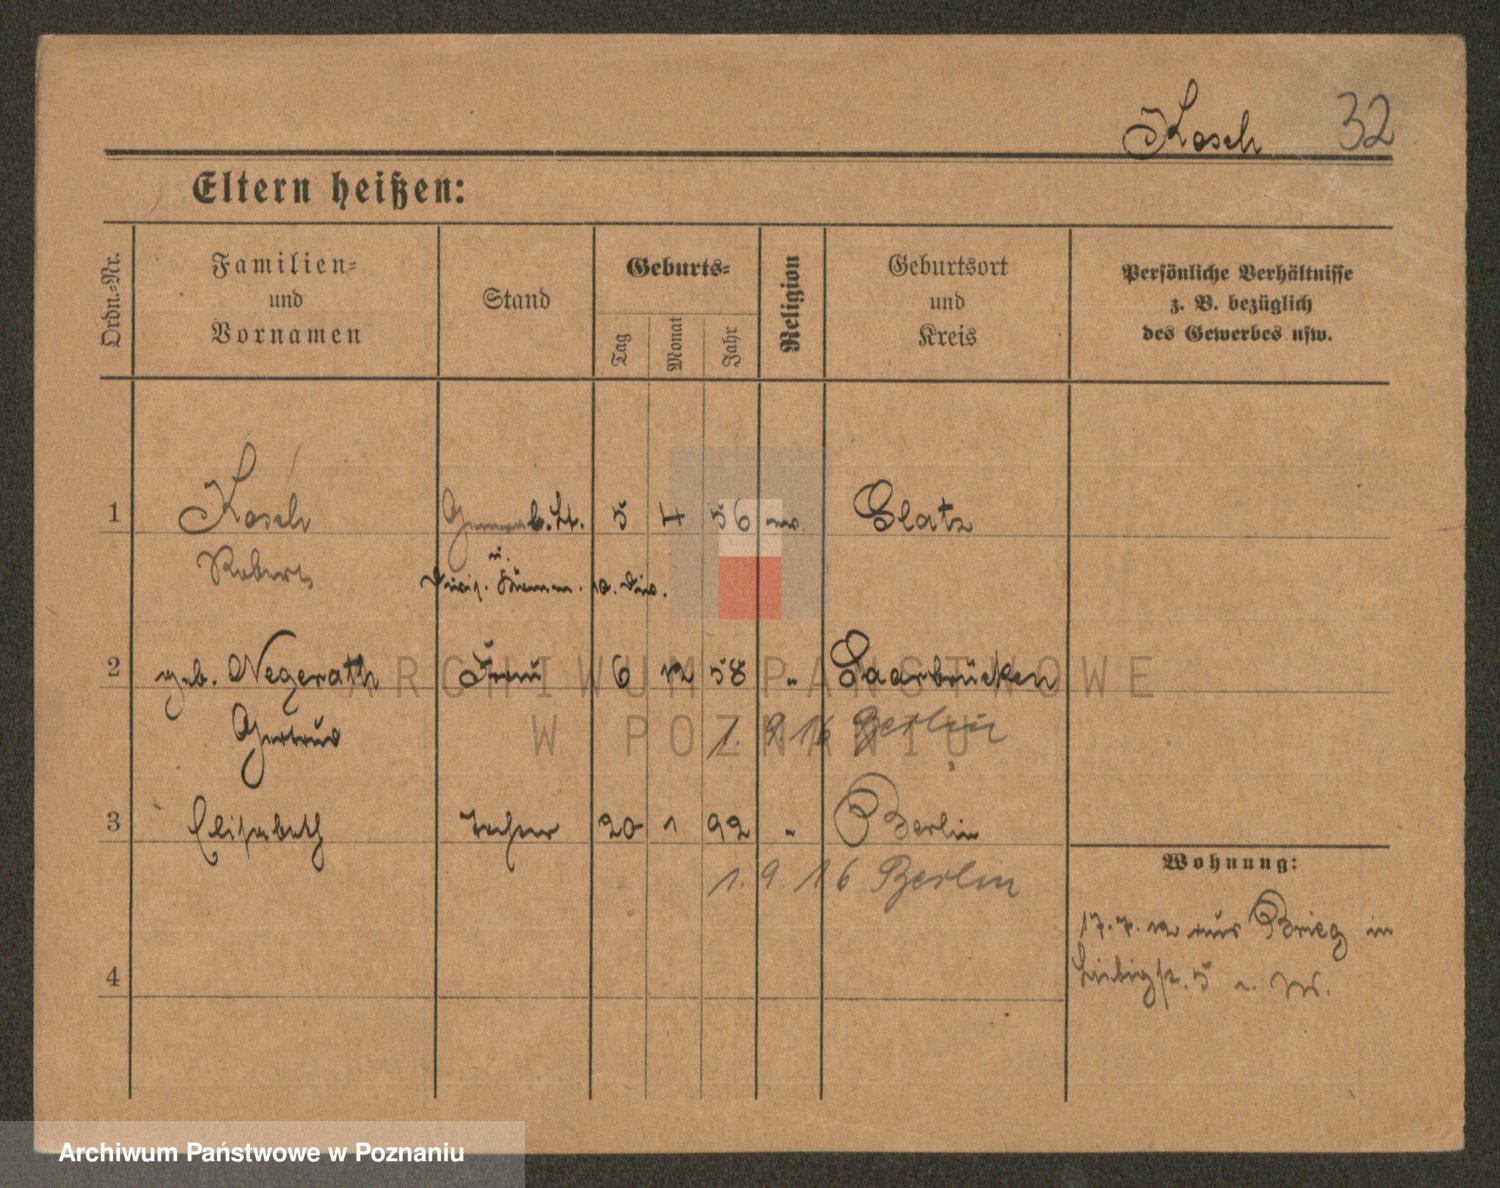 Kosch 32
Eltern heißen:
Ordn.-Nr.
Familien-
und
Vornamen
Stand
Geburts-
Tag
Monat
Jahr
Religion
Geburtsort
und
Kreis
Persönliche Verhältnisse
z. B. bezüglich
des Gewerbes usw.
1 Kosch 5 4 56 ev. Glatz
Robert
u.
10. Div.
2 geb. Negerath Frau 6 12 58 " Saarbrücken
Gertrud 1. 9. 16 Berlin
3 Elisabeth Tochter 20 1 92 " Berlin
1. 9. 16 Berlin
Wohnung:
17. 7. 12 aus Brieg in
Liebigstr. 5
4
ARCHIWUM PAŃSTWOWE
W POZNANIU
Archiwum Państwowe w Poznaniu